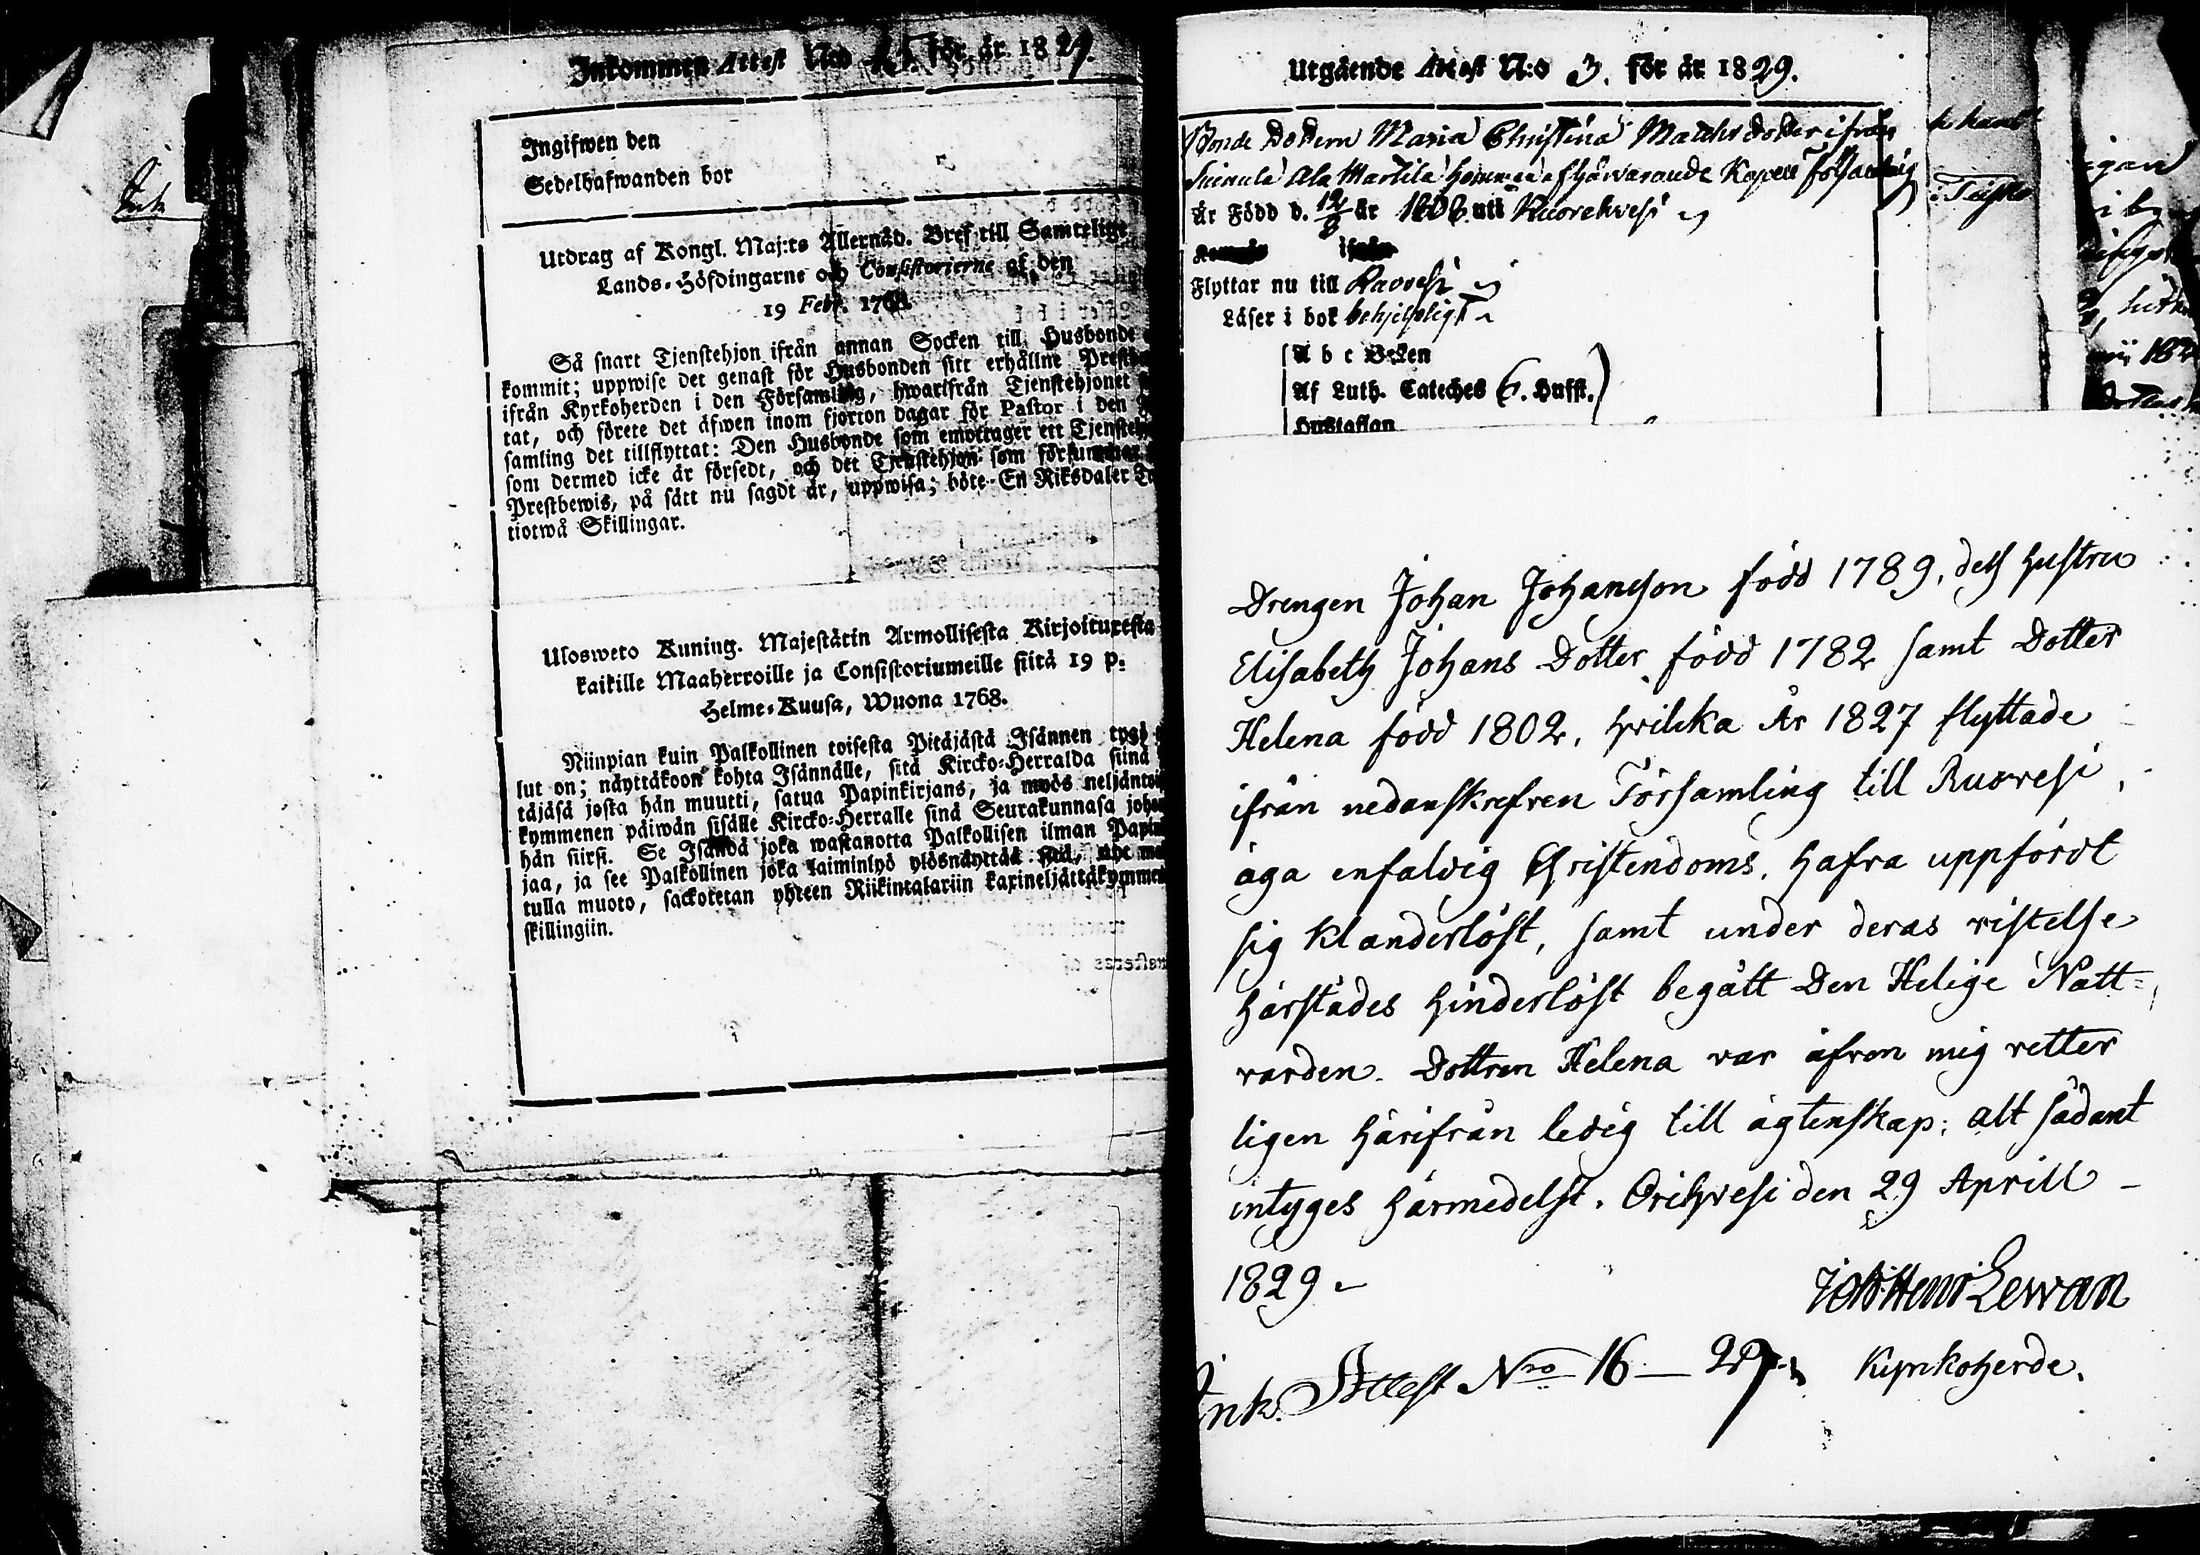 Ink
Inkommen Attest N:o 15 för år 1829.
Ingifwen den
Sedelhafwanden bor
Utdrag af Kongl. Maj:ts Allernåd. Bref till Samtelige
Lands-Höfdingarne och Consistorierne af den
19 Febr. 1768.
Så snart Tjenstehjon ifrån annan Socken till Husbonde
kommit; uppwise det genast för Husbonden sitt erhållne
ifrån Kyrkoherden i den Församling, hwarifrån Tjenstehjonet
tat, och förete det äfwen inom fjorton dagar för Pastor i den
samling det tillflyttat: Den Husbonde som emottager ett
som dermed icke är försedt, och det Tjenstehjon som försummar
Prestbewis, på sätt nu sagdt är, uppwisa; böte En Riksdaler
tiotwå Skillingar.
Ulosweto Kuning. Majestätin Armollisesta Kirjoituxesta
kaikille Maaherroille ja Consistoriumeille siitä 19 p:
Helme-Kuusa, Wuona 1768.
Niinpian kuin Palkollinen toisesta Pitäjästä Isännen tygö
lut on; näyttäköön kohta Isännälle, sitä Kircko-Herralda siinä
täjäsä josta hän muutti, satua Papinkirjans, ja myös
kymmenen päiwän sisälle Kircko-Herralle sinä Seurakunnasa
hän siirsi. Se Isändä joka wastanotta Palkollisen ilman
jaa, ja see Palkollinen joka laiminlyö ylösnäyttää
tulla muoto, sackotetan yhteen Riikintalariin
skillingiin.
Utgående Attest N:o 3. för år 1829.
Bonde Dottern Maria Christina Matths dotter ifrån
Ala Martila hemman af härwarande Kapell Församling
År Född d. 12/8 år 1806 uti Kuorehvesi
Flyttar nu till Rauvesi
Läser i bok behjelpligt
A b c Boken
Af Luth. Cateches 6. Hufst.
Hustaflan
Drengen Johan Johansson född 1789, dess hustru
Elisabeth Johans Dotter född 1782 samt Dotter
Helena född 1802, hvilcka År 1827 flyttade
ifrån nedanskrefven Församling till Ruovesi,
äga enfaldig Christendoms, hafva uppfördt
sig klanderlöst, samt under deras vistelse
härstädes hinderlöst begått Den Helige Natt-
varden. Dottren Helena var äfven mig vetter
ligen härifrån ledig till ägtenskap; alt sådant
intyges härmedelst. Orihvesi den 29 Aprill
1829
Joh: Henr Lewan
Kyrkoherde.
Ink. Attest Nro 16 — 29